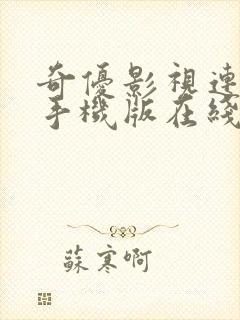 奇優影視連
手機版在綫
蘇寒啊